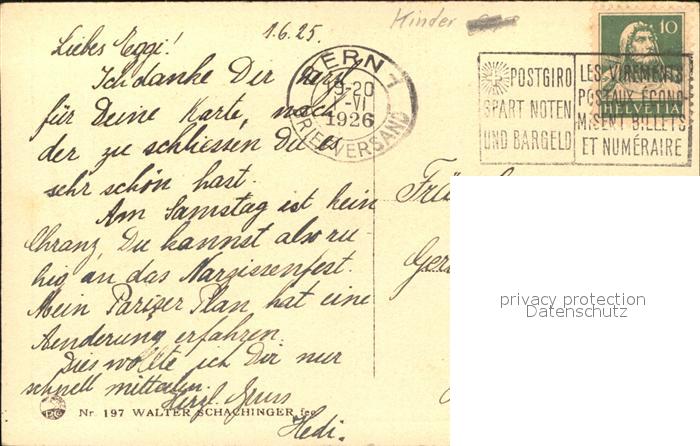 1.6.25.
Kinder
Liebes Eggi!
Ich danke Dir herzl.
für Deine Karte, nach
der zu schliessen Du es
sehr schön hast.
Am Samstag ist kein
Chranz, Du kannst also ru-
hig an das Narzissenfest.
Mein Pariser Plan hat eine
Aenderung erfahren.
Dies wollte ich Dir nur
schnell mitteilen.
Herzl. Gruss
Hedi.
Nr. 197 WALTER SCHACHINGER fec
BERN 1
19-20
1-VI
1926
BRIEFVERSAND
POSTGIRO
SPART NOTEN
UND BARGELD
LES VIREMENTS
POSTAUX ÉCONO-
MISENT BILLETS
ET NUMÉRAIRE
10
HELVETIA
privacy protection
Datenschutz